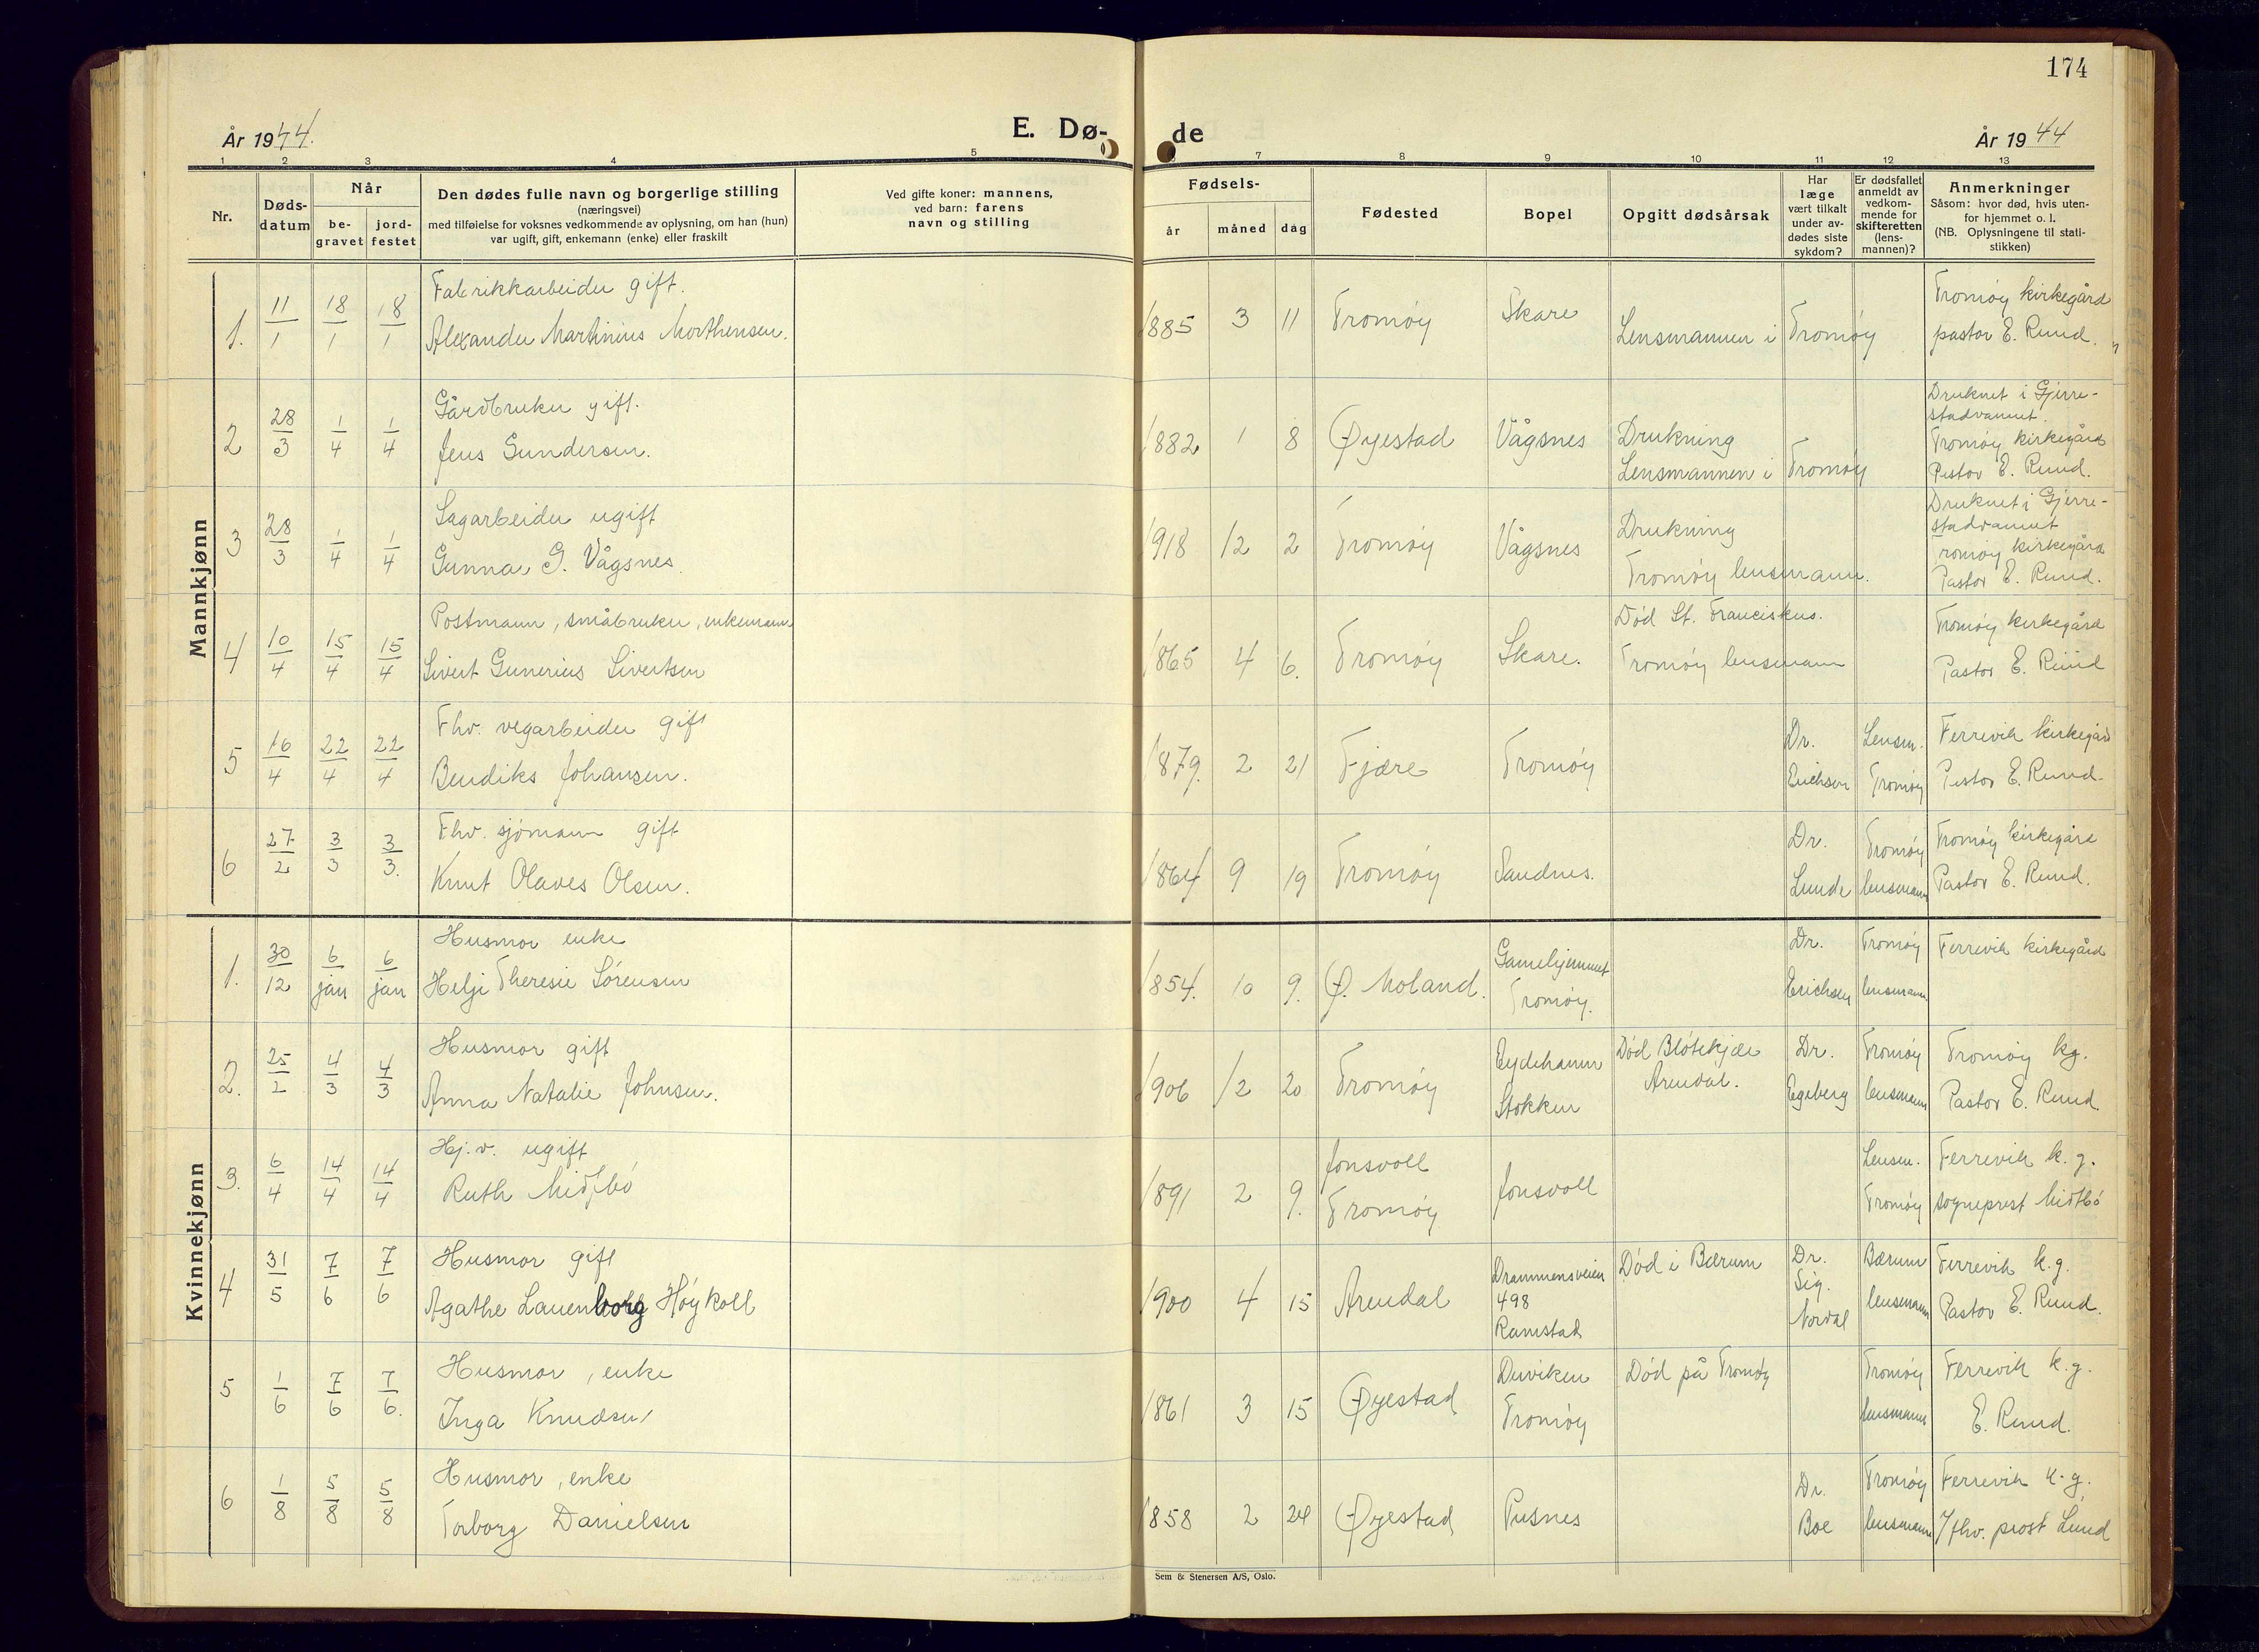 174
År 1944.
E. Dø-
de
År 1944
1 2 3 4 5 7 8 9 10 11 12 13
Nr.
Døds-
datum
Når
be-
gravet
jord-
festet
Den dødes fulle navn og borgerlige stilling
(næringsvei)
med tilføielse for voksnes vedkommende av oplysning, om han (hun)
var ugift, gift, enkemann (enke) eller fraskilt
Ved gifte koner: mannens,
ved barn: farens
navn og stilling
Fødsels-
år måned dag
Fødested
Bopel
Opgitt dødsårsak
Har
læge
vært tilkalt
under av-
dødes siste
sykdom?
Er dødsfallet
anmeldt av
vedkom-
mende for
skifteretten
(lens-
mannen)?
Anmerkninger
Såsom: hvor død, hvis uten-
for hjemmet o. l.
(NB. Oplysningene til stati-
stikken)
Mannkjønn
1. 11/1 18/1 18/1
Fabrikkarbeider gift.
Alexander Martinius Morthensen.
1885 3 11 Tromøy Skare
Lensmannen i Tromøy
Tromøy kirkegård
pastor E. Ruud.
2 28/3 1/4 1/4
Gårdbruker gift.
Jens Gundersen.
1882 1 8 Øyestad Vågsnes
Drukning
Lensmannen i Tromøy
Druknet i Gjerre-
stadvannet.
Tromøy kirkegård
Pastor E. Ruud.
3 28/3 1/4 1/4
Sagarbeider ugift
Gunnar G. Vågsnes.
1918 12 2 Tromøy Vågsnes
Drukning
Tromøy lensmann.
Druknet i Gjerre-
stadvannet
Tromøy kirkegård
Pastor E. Ruud.
4 10/4 15/4 15/4
Postmann, småbruker, enkemann
Sivert Gunerius Sivertsen
1865 4 6. Tromøy Skare.
Død St. Franciskus.
Tromøy lensmann
Tromøy kirkegård
Pastor E. Ruud
5 16/4 22/4 22/4
Fhv. vegarbeider gift
Bendiks Johansen.
1879. 2 21 Fjære Tromøy
Dr.
Erichsen
Lensm.
Tromøy
Færrevik kirkegård
Pastor E. Ruud.
6 27/2 3/3 3/3.
Fhv. sjömann gift
Knut Olaves Olsen.
1864 9 19 Tromøy Sandnes.
Dr.
Lunde
Tromøy
lensmann
Tromøy kirkegård
Pastor E. Ruud.
Kvinnekjønn
1. 30/12 6/jan 6/jan
Husmor enke
Helji Theresie Sörensen
1854. 10 9. Ø. Moland.
Gamlehjemmet
Tromøy.
Dr.
Erichsen
Tromøy
lensmann
Færrevik kirkegård
2. 25/2 4/3 4/3
Husmor gift
Anna Natalie Johnsen.
1906 12 20 Tromøy
Eydehavn
Stokken
Død Blötekjær
Arendal.
Dr.
Egeberg
Tromøy
lensmann
Tromøy kg.
Pastor E. Ruud.
3. 6/4 14/4 14/4
Hj.v. ugift
Ruth Midtbö
1891 2 9.
Jonsvoll
Tromøy
Jonsvoll
Lensm.
Tromøy
Færrevik k.g.
sogneprest Midtbö
4 31/5 7/6 7/6
Husmor gift
Agathe Lauenborg Höykoll
1900 4 15 Arendal
Drammensveien
498
Ramstad
Død i Bærum
Dr.
Sig.
Nordal
Bærum
lensmann
Færrevik k.g.
Pastor E. Ruud.
5 1/6 7/6 7/6.
Husmor, enke
Inga Knudsen
1861 3 15 Øyestad
Duviken
Tromøy
Død på Tromøy
Tromøy
lensmann
Færrevik k.g.
E. Ruud.
6 1/8 5/8 5/8
Husmor, enke
Torborg Danielsen
1858 2 24 Øyestad Pusnes
Dr.
Boe
Tromøy
lensmann
Færrevik k.g.
/fhv. prost Lund
Sem & Stenersen A/S, Oslo.